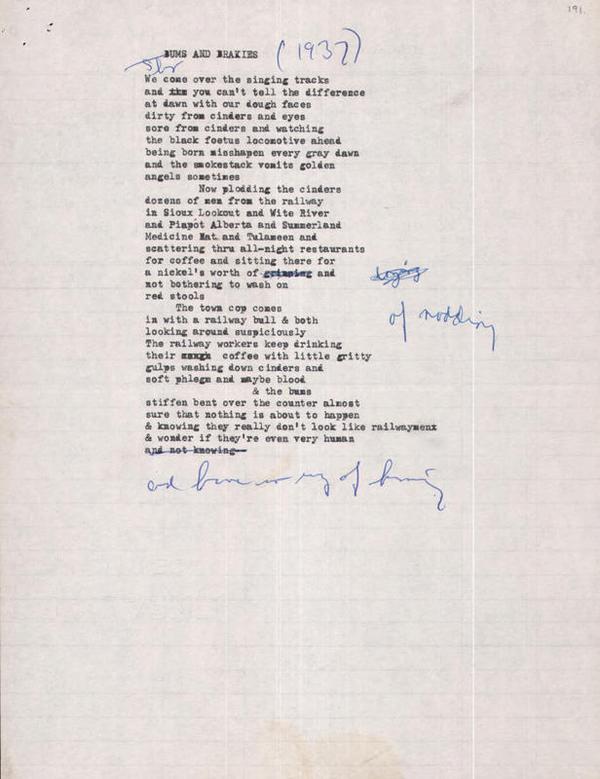 191.
BUMS AND BRAKIES (1937)
We come over the singing tracks
and you can't tell the difference
at dawn with our dough faces
dirty from cinders and eyes
sore from cinders and watching
the black foetus locomotive ahead
being born misshapen every gray dawn
and the smokestack vomits golden
angels sometimes
Now plodding the cinders
dozens of men from the railway
in Sioux Lookout and Wite River
and Piapot Alberta and Summerland
Medicine Hat and Tulameen and
scattering thru all-night restaurants
for coffee and sitting there for
a nickel's worth of and
not bothering to wash on
red stools
of nodding
The town cop comes
in with a railway bull & both
looking around suspiciously
The railway workers keep drinking
their coffee with little gritty
gulps washing down cinders and
soft phlegm and maybe blood
& the bums
stiffen bent over the counter almost
sure that nothing is about to happen
& knowing they really don't look like railwaymenx
& wonder if they're even very human
and not knowing--
and have no way of knowing